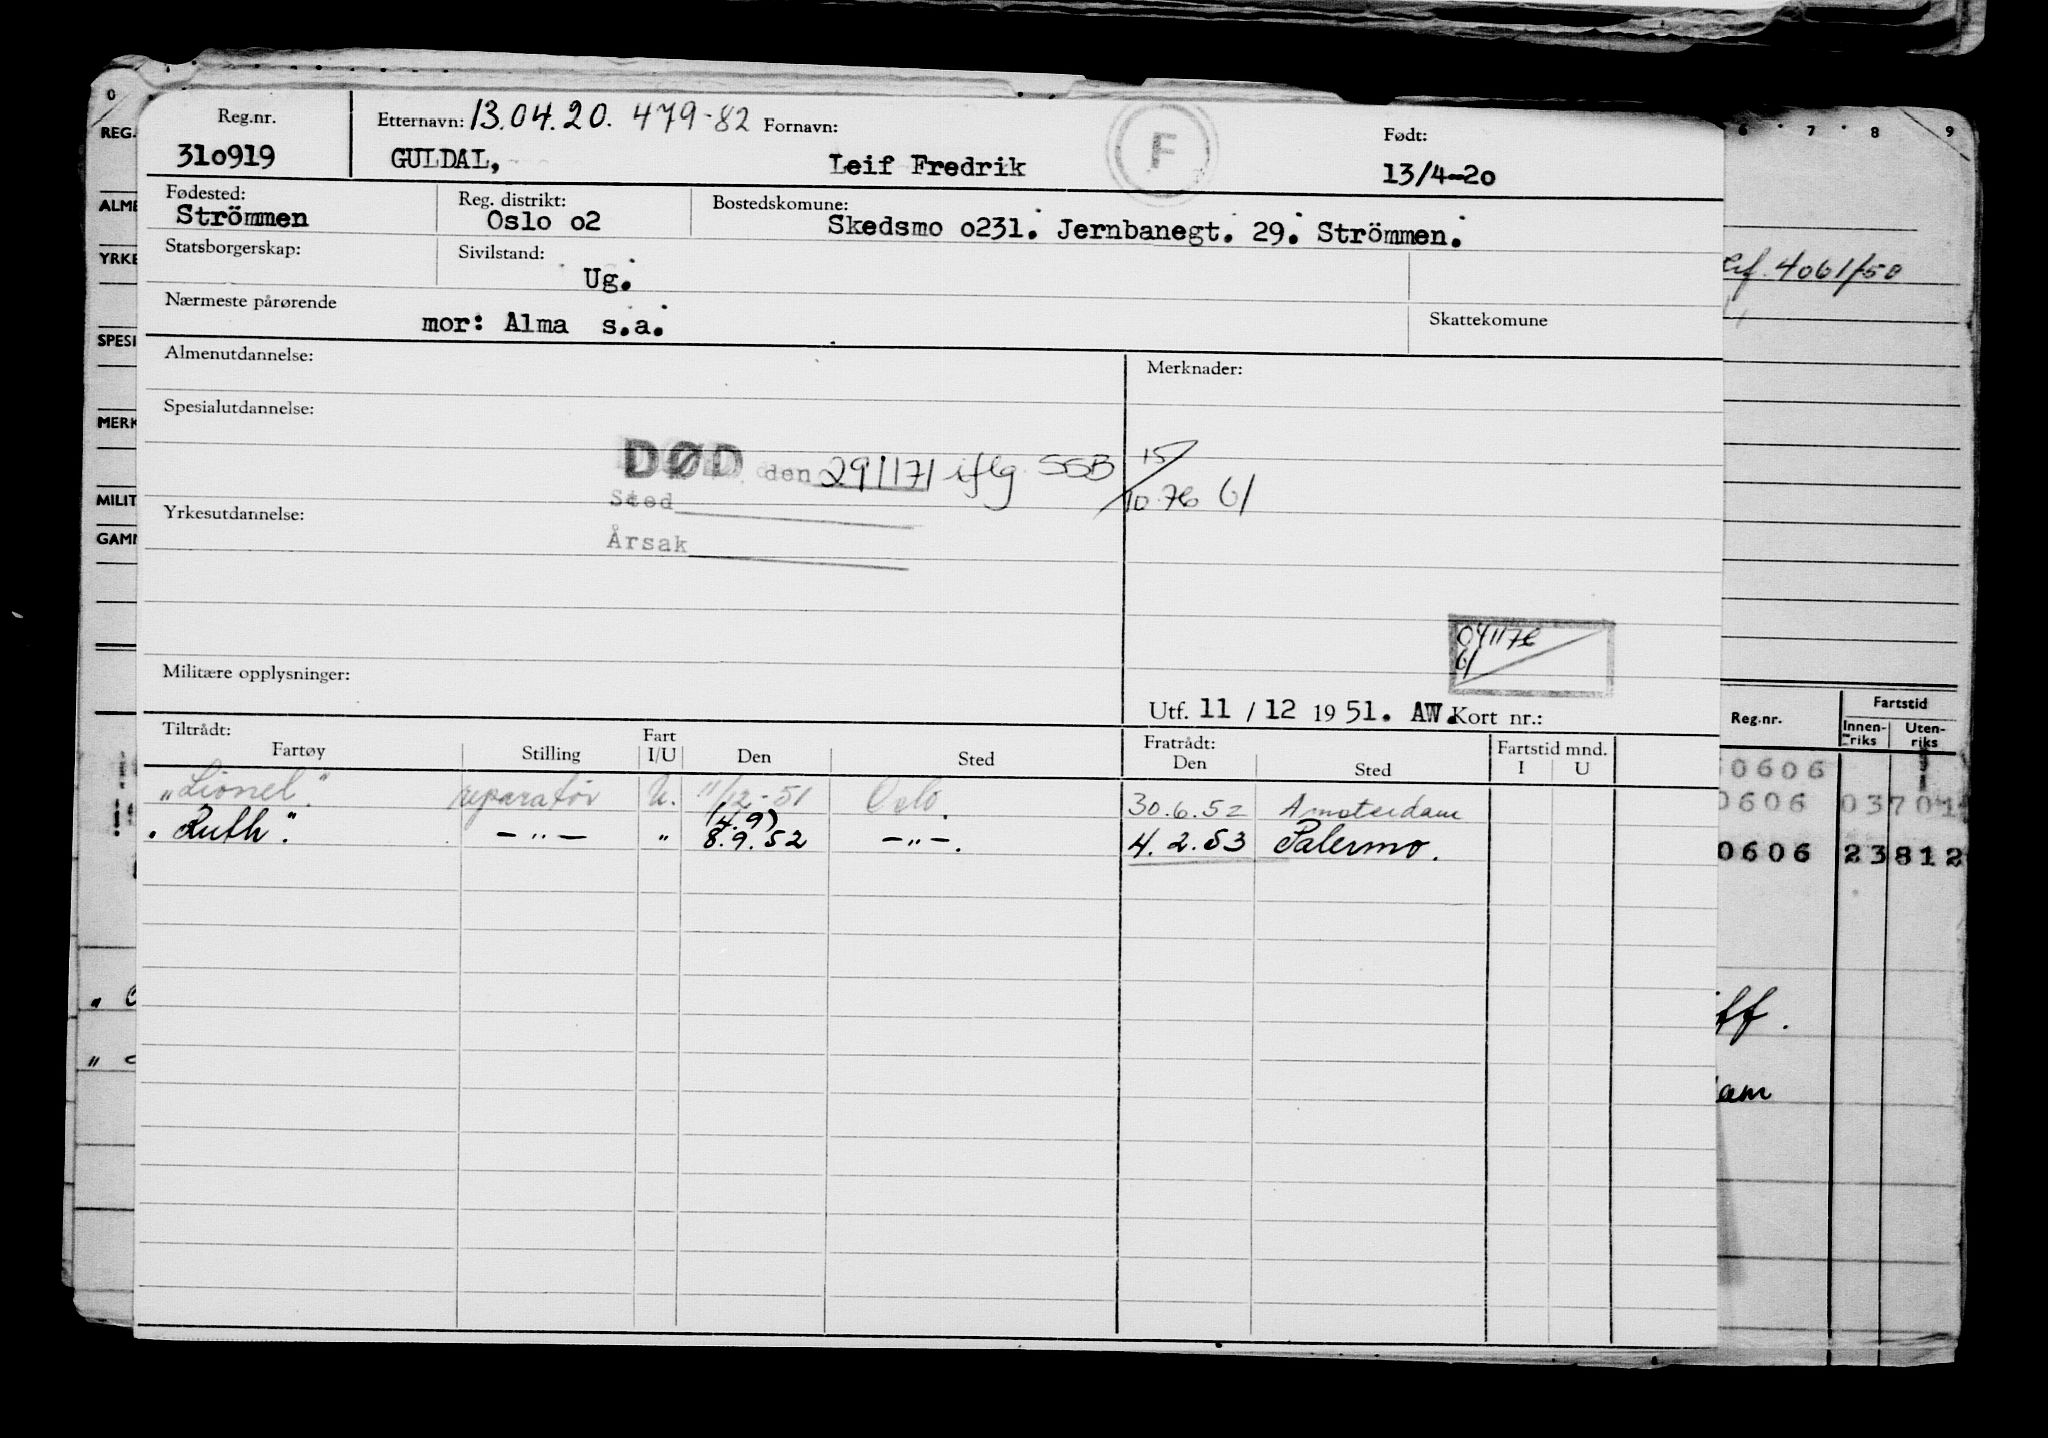 Reg.nr. Etternavn: 13.04.20. 479-82 Fornavn: F Født:
310919 GULDAL, Leif Fredrik 13/4-20
Fødested: Reg. distrikt: Bostedskomune:
Strömmen Oslo o2 Skedsmo o231. Jernbanegt. 29. Strömmen.
Statsborgerskap: Sivilstand:
Ug.
Nærmeste pårørende Skattekomune
mor: Alma s.a.
Almenutdannelse: Merknader:
Spesialutdannelse:
DØD den 291171 iflg SSB 15/10.76 61
Sted
Yrkesutdannelse:
Årsak
041176
61
Militære opplysninger:
Utf. 11 / 12 19 51. AW. Kort nr.:
Tiltrådt: Fart Fratrådt: Fartstid mnd.
Fartøy Stilling I/U Den Sted Den Sted I U
"Lionel". reparatør U. 11/12-51 Oslo. 30.6.52 Amsterdam
(4.9)
"Ruth". —"— " 8.9.52 —"—. 4.2.53 Palermo.
0
REG.
ALME
YRKE
SPESI
MERK
MILIT
GAMM
6 7 8 9
4061/50
Reg.nr. Fartstid
Innen-riks Uten-riks
0606
0606 03701
0606 23812
ff.
am